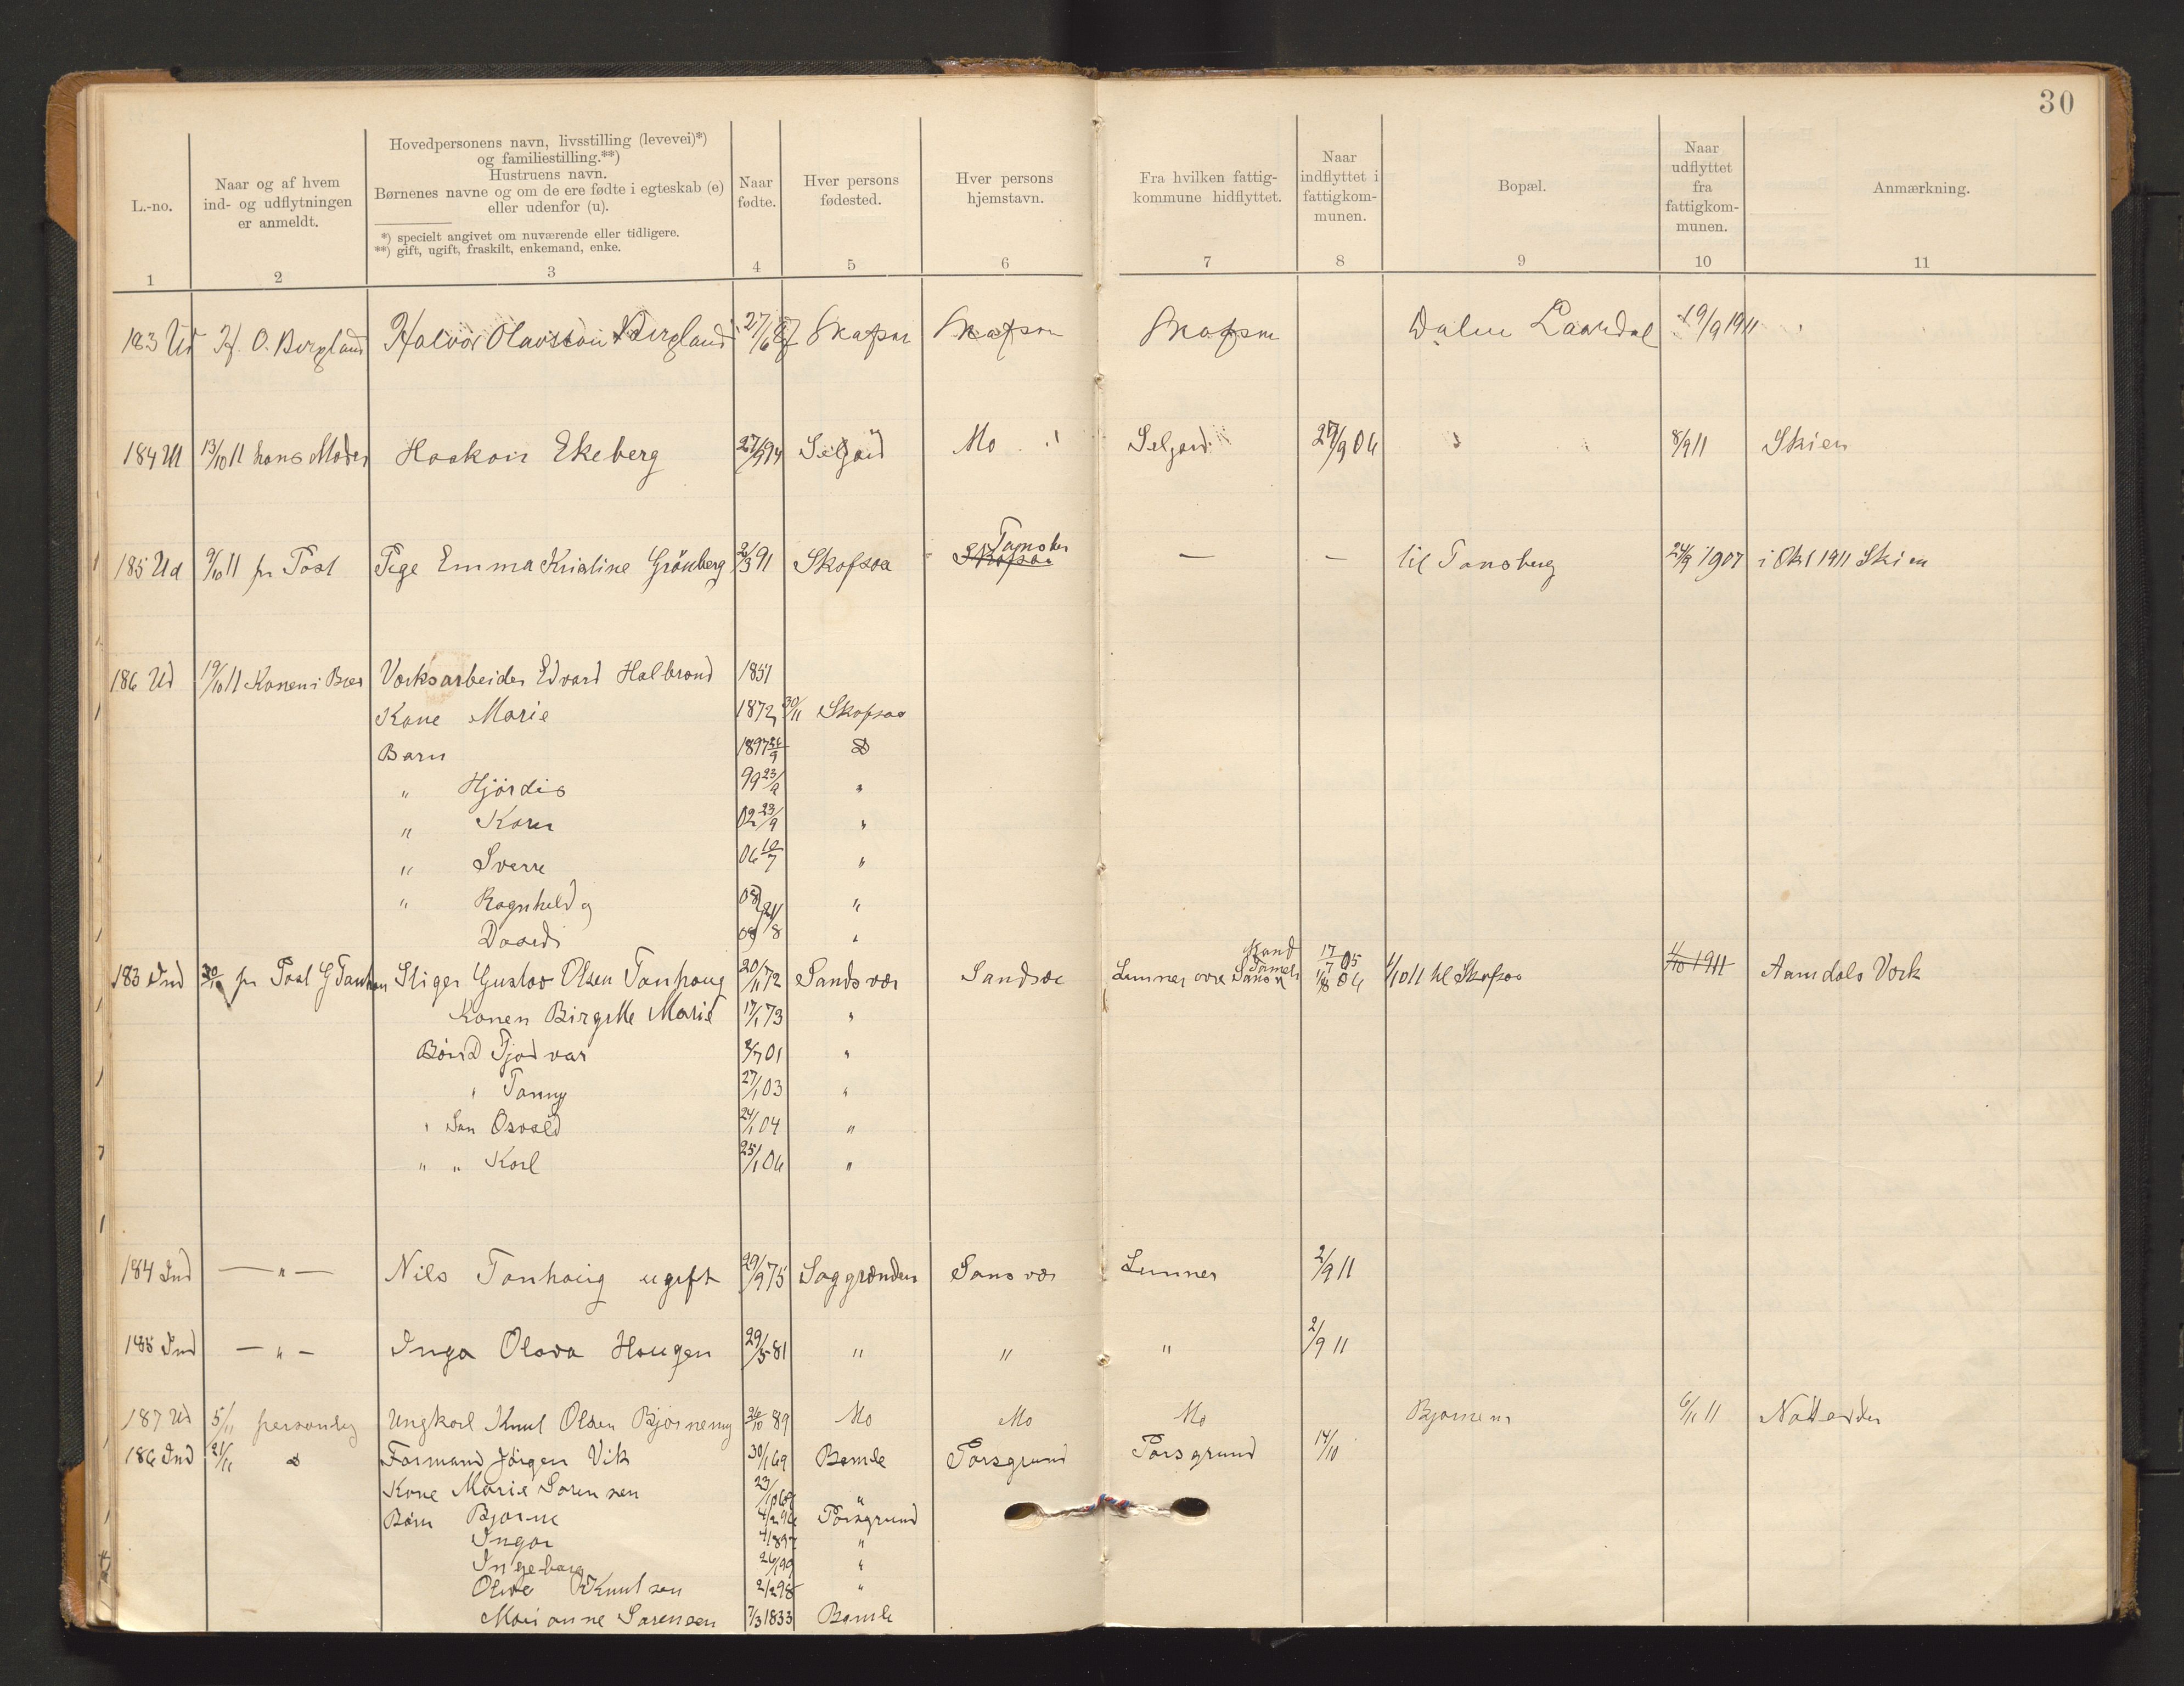 30
L.-no.
Naar og af hvem
ind- og udflytningen
er anmeldt.
Hovedpersonens navn, livsstilling (levevei)*)
og familiestilling.**)
Hustruens navn.
Børnenes navne og om de ere fødte i egteskab (e)
eller udenfor (u).
*) specielt angivet om nuværende eller tidligere.
**) gift, ugift, fraskilt, enkemand, enke.
Naar
fødte.
Hver persons
fødested.
Hver persons
hjemstavn.
Fra hvilken fattig-
kommune hidflyttet.
Naar
indflyttet i
fattigkom-
munen.
Bopæl.
Naar
udflyttet
fra
fattigkom-
munen.
Anmærkning.
1 2 3 4 5 6 7 8 9 10 11
183 Ud H. O. Bergland Halvor Olavson Bergland 27/6 Skafsaa Skafsaa Skafsaa Dalen Laardal 19/9 1911
184 Ud 13/10 11 hans Moder Haakon Ekeberg 27/9 94 Seljord Mo Seljord 27/9 06 8/9 11 Skien
Tønsber
185 Ud 9/10 11 pr Post Pige Emma Kristine Grönberg 2/3 91 Skafsaa Skafsaa — — til Tønsberg 24/9 1907 i Okt 1911 Skien
186 Ud 19/10 11 Konen i Brev Verksarbeider Edvard Halbrand 1851
Kone Marie 1872 30/11 Skafsaa
Barn 1897 26/9 D
" Hjördis 99 23/9 "
" Karen 02 23/9 "
" Sverre 06 10/7 "
" Ragnhild og 08 "
David 08 21/8 "
183 Ind 30/10 pr Post G Tanhau Stiger Gustav Olsen Tanhaug 20/11 72 Sandsvær Sandsvæ Lunner 17/7 05 1/10 11 til Skafsaa 1/10 1911 Aamdals Verk
Konen Birgitte Marie 17/1 73 "
Börn D Tjodvar 2/7 01 "
" Fanny 27/1 03 "
" Søn Osvald 24/1 04 "
" " Karl 25/1 06 "
184 Ind — " — Nils Tanhaug ugift 29/9 75 Saggrænden Sansvær Lunner 2/9 11
185 Ind — " — Inga Olava Haugen 29/5 81 " " " 2/9 11
187 Ud 5/11 personlig Ungkarl Knut Olsen Björnemyr 26/10 89 Mo Mo Mo Bjørnem 6/11 11 Notodden
186 Ind 21/11 D Formand Jörgen Vik 30/1 69 Bamle Porsgrund Porsgrund 14/10
Kone Marie Sørensen 23/10 68 "
Børn Bjarne 4/2 96 Porsgrund
Ingar 4/8 97 "
Ingeborg 26/1 99 "
Oline Knutsen 2/2 98 "
Marianne Sørensen 7/3 1833 Bamle